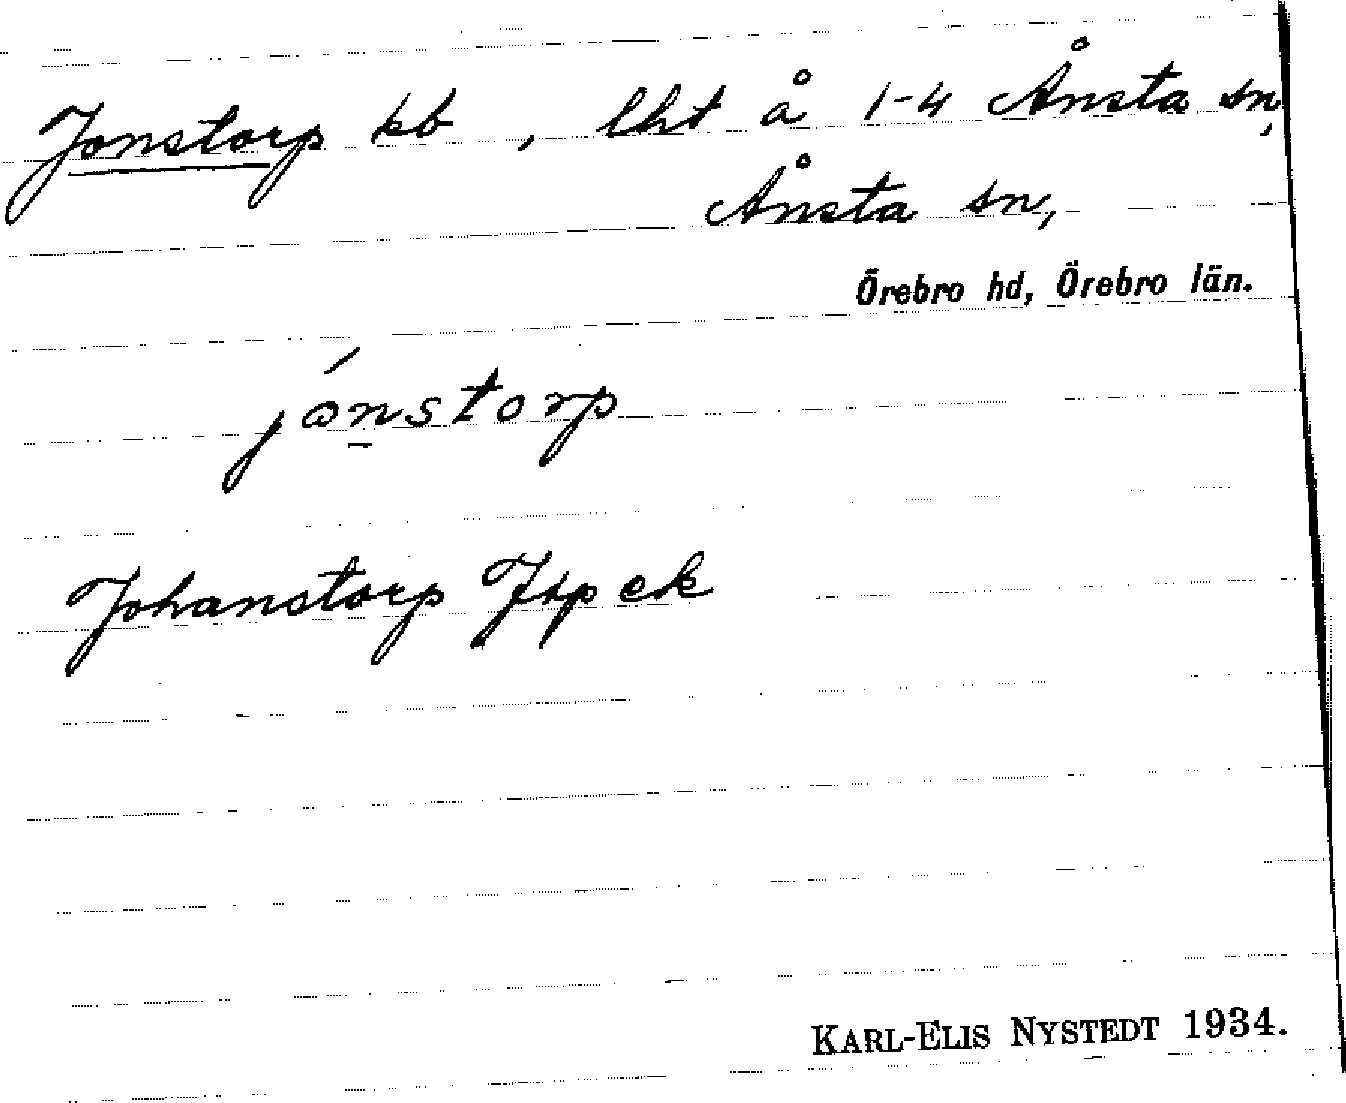 Jonstorp kb, lht å 1-4 Ånsta sn,
Ånsta sn,
Örebro hd, Örebro län.
jónstorp
Johanstorp Jfpek
KARL-ELIS NYSTEDT 1934.